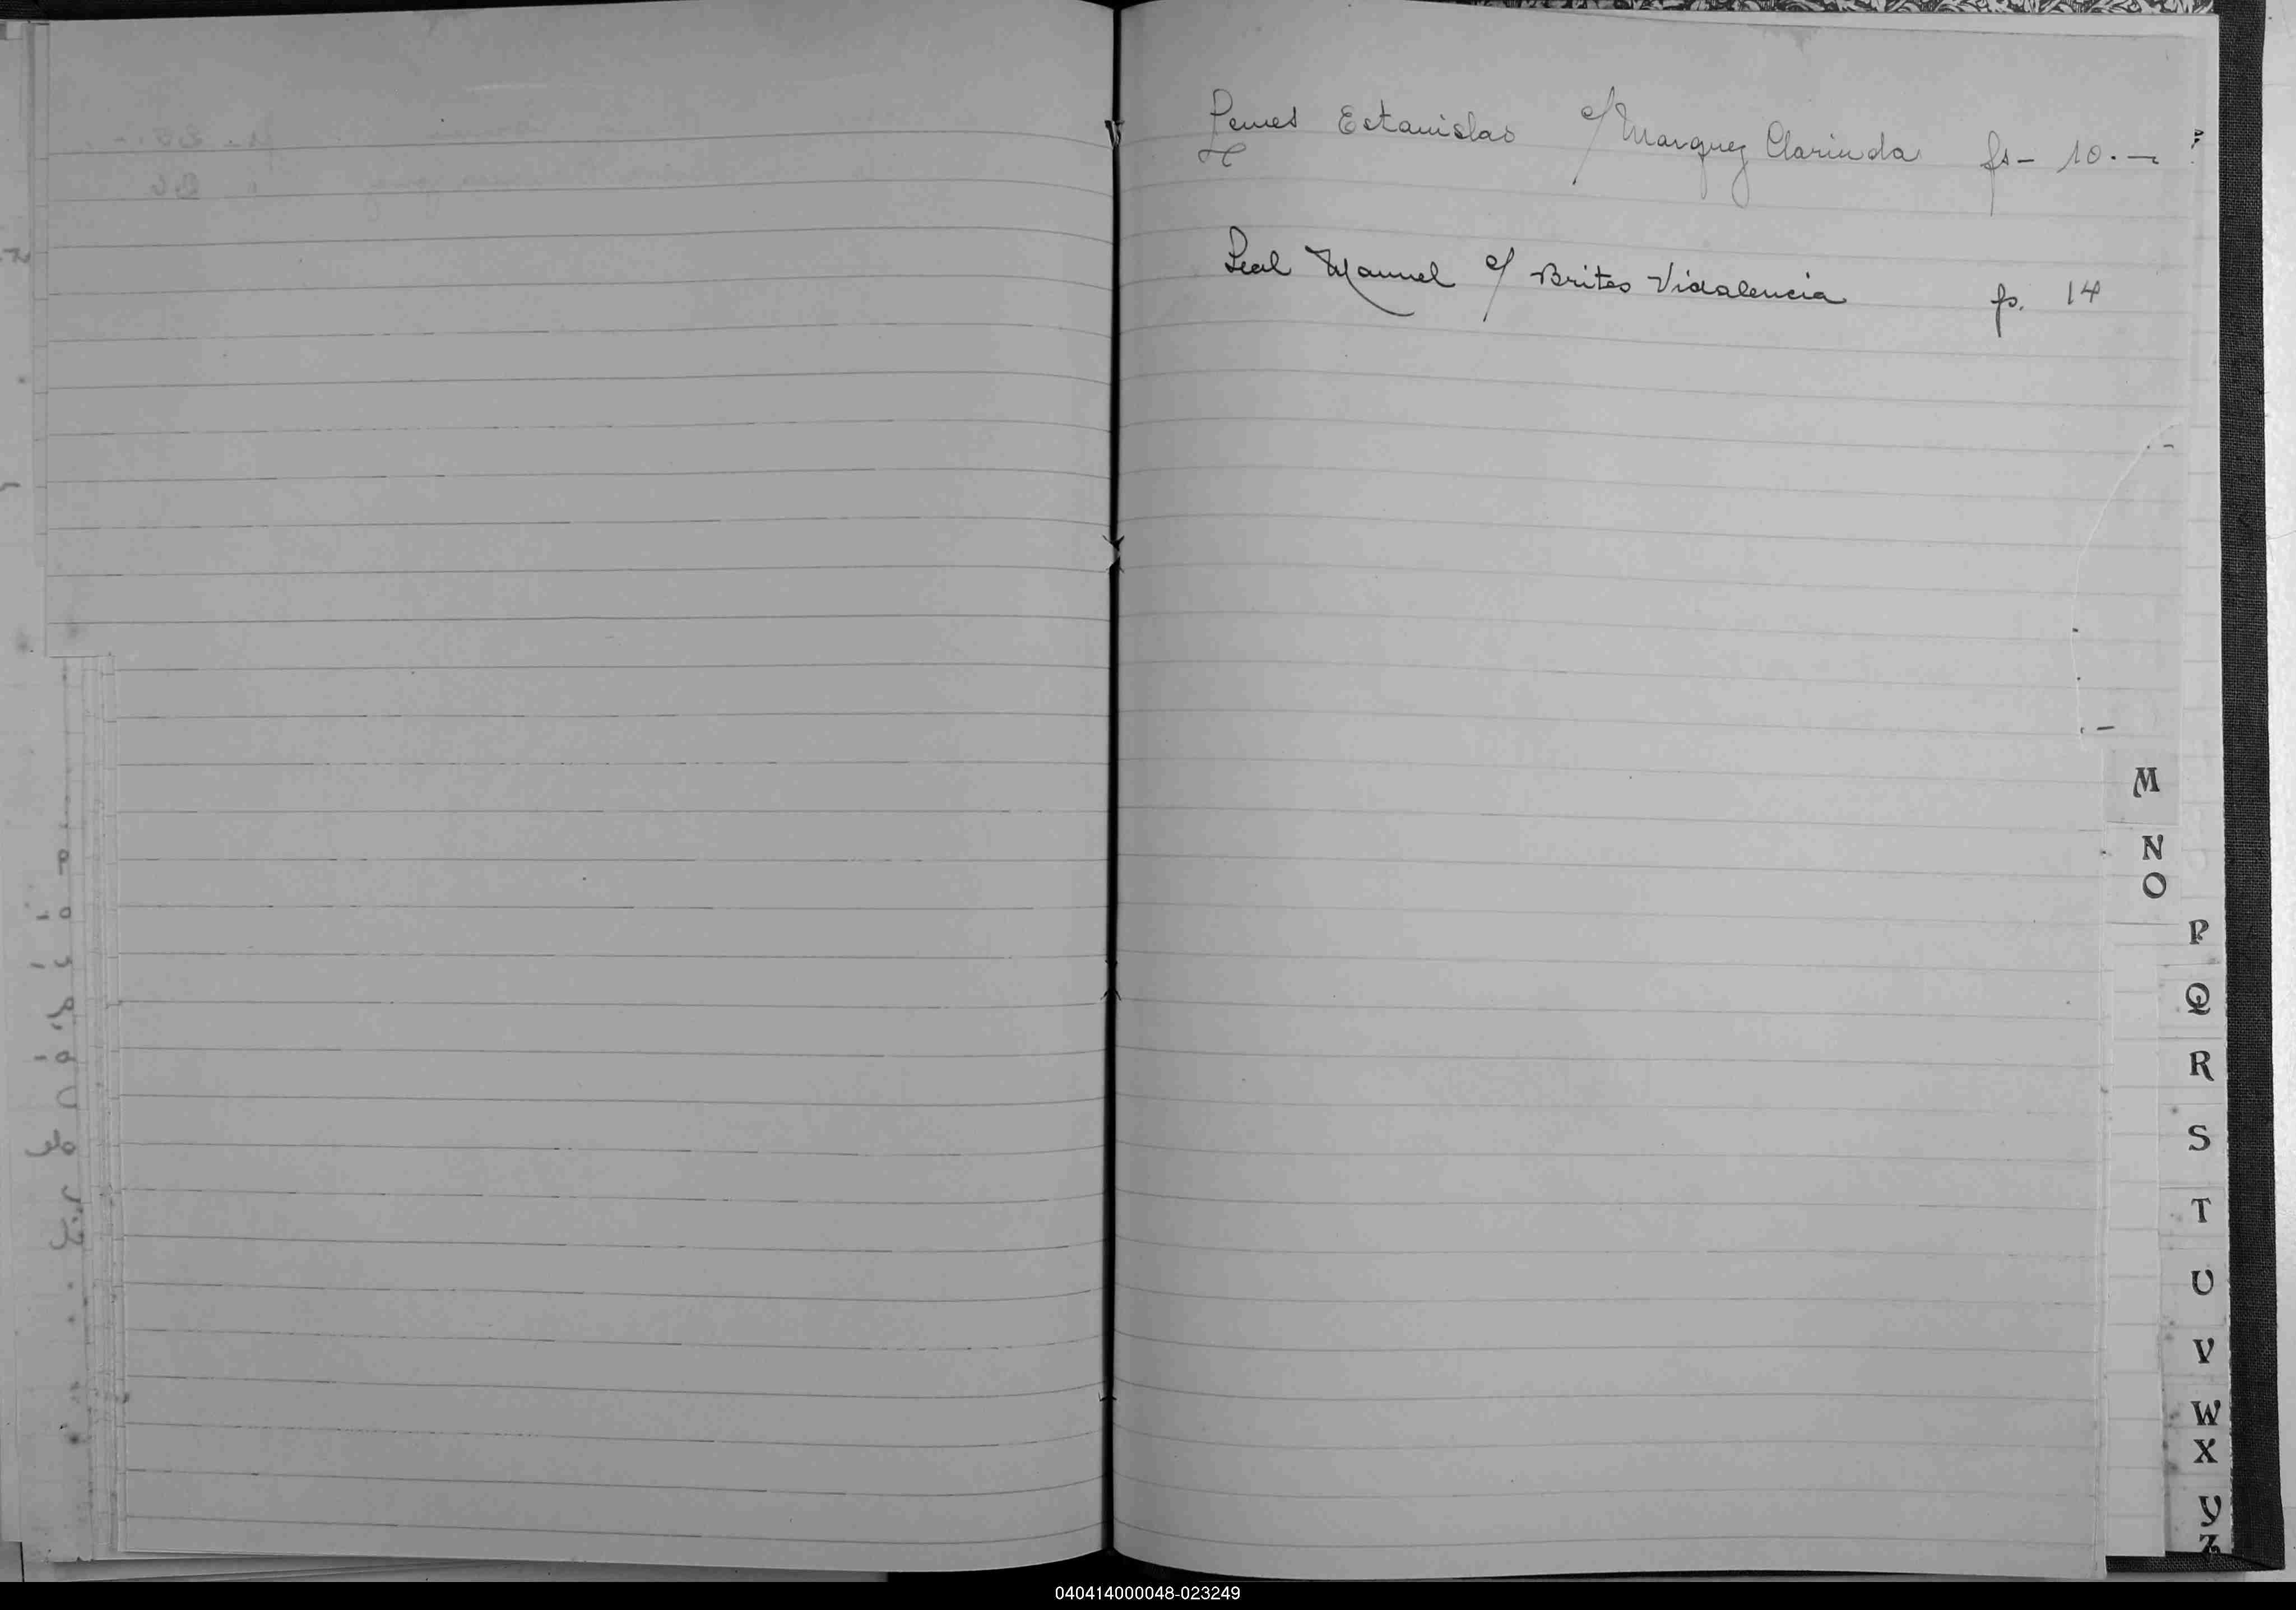 Lemes Estanislao c/ Marquez Clarinda fs- 10.-
Leal Manuel c/ Brites Vidalencia fs. 14
M
N
O
P
Q
R
S
T
U
V
W
X
Y
Z
040414000048-023249